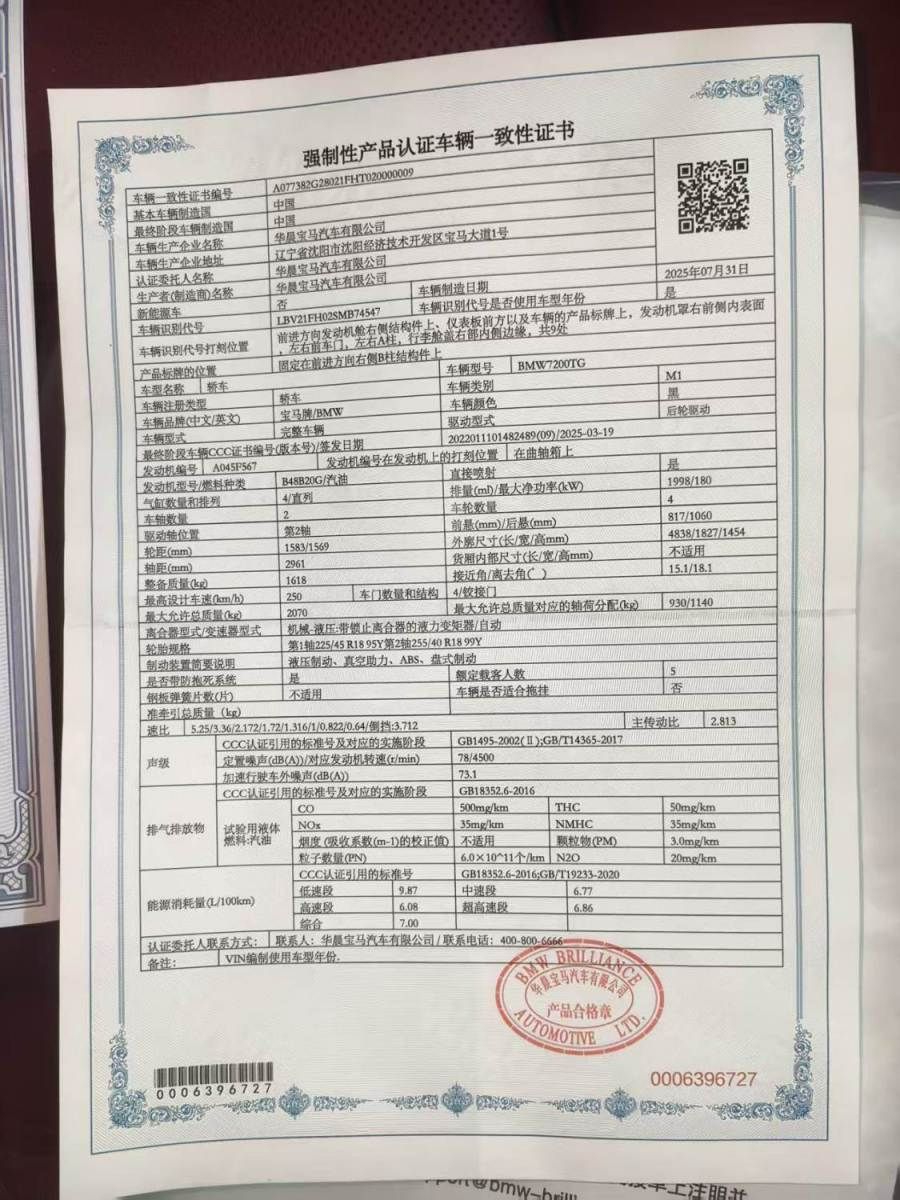 强制性产品认证车辆一致性证书
车辆一致性证书编号 A077382G28021FHT020000009
基本车辆制造国 中国
最终阶段车辆制造国 中国
车辆生产企业名称 华晨宝马汽车有限公司
车辆生产企业地址 辽宁省沈阳市沈阳经济技术开发区宝马大道1号
认证委托人名称 华晨宝马汽车有限公司
生产者(制造商)名称 华晨宝马汽车有限公司 车辆制造日期 2025年07月31日
新能源车 否 车辆识别代号是否使用车型年份 是
车辆识别代号 LBV21FH02SMB74547
车辆识别代号打刻位置 前进方向发动机舱右侧结构件上、仪表板前方以及车辆的产品标牌上，发动机罩右前侧内表面
，左右前车门，左右A柱，行李舱盖右部内侧边缘，共9处
产品标牌的位置 固定在前进方向右侧B柱结构件上
车型名称 轿车 车辆型号 BMW7200TG
车辆注册类型 轿车 车辆类别 M1
车辆品牌(中文/英文) 宝马牌/BMW 车辆颜色 黑
车辆型式 完整车辆 驱动型式 后轮驱动
最终阶段车辆CCC证书编号(版本号)/签发日期 2022011101482489(09)/2025-03-19
发动机编号 A045F567 发动机编号在发动机上的打刻位置 在曲轴箱上
发动机型号/燃料种类 B48B20G/汽油 直接喷射 是
气缸数量和排列 4/直列 排量(ml)/最大净功率(kW) 1998/180
车轴数量 2 车轮数量 4
驱动轴位置 第2轴 前悬(mm)/后悬(mm) 817/1060
轮距(mm) 1583/1569 外廓尺寸(长/宽/高mm) 4838/1827/1454
轴距(mm) 2961 货厢内部尺寸(长/宽/高mm) 不适用
整备质量(kg) 1618 接近角/离去角(°) 15.1/18.1
最高设计车速(km/h) 250 车门数量和结构 4/铰接门
最大允许总质量(kg) 2070 最大允许总质量对应的轴荷分配(kg) 930/1140
离合器型式/变速器型式 机械-液压:带锁止离合器的液力变矩器/自动
轮胎规格 第1轴225/45 R18 95Y第2轴255/40 R18 99Y
制动装置简要说明 液压制动、真空助力、ABS、盘式制动
是否带防抱死系统 是 额定载客人数 5
钢板弹簧片数(片) 不适用 车辆是否适合拖挂 否
准牵引总质量（kg）
速比 5.25/3.36/2.172/1.72/1.316/1/0.822/0.64/倒挡:3.712 主传动比 2.813
声级 CCC认证引用的标准号及对应的实施阶段 GB1495-2002(Ⅱ);GB/T14365-2017
定置噪声(dB(A))/对应发动机转速(r/min) 78/4500
加速行驶车外噪声(dB(A)) 73.1
排气排放物 CCC认证引用的标准号及对应的实施阶段 GB18352.6-2016
试验用液体
燃料:汽油
CO 500mg/km THC 50mg/km
NOx 35mg/km NMHC 35mg/km
烟度 (吸收系数(m-1)的校正值) 不适用 颗粒物(PM) 3.0mg/km
粒子数量(PN) 6.0×10^11个/km N2O 20mg/km
能源消耗量(L/100km) CCC认证引用的标准号 GB18352.6-2016;GB/T19233-2020
低速段 9.87 中速段 6.77
高速段 6.08 超高速段 6.86
综合 7.00
认证委托人联系方式： 联系人：华晨宝马汽车有限公司 / 联系电话：400-800-6666
备注： VIN编制使用车型年份.
BMW BRILLIANCE
华晨宝马汽车有限公司
产品合格章
AUTOMOTIVE LTD.
0006396727
0006396727